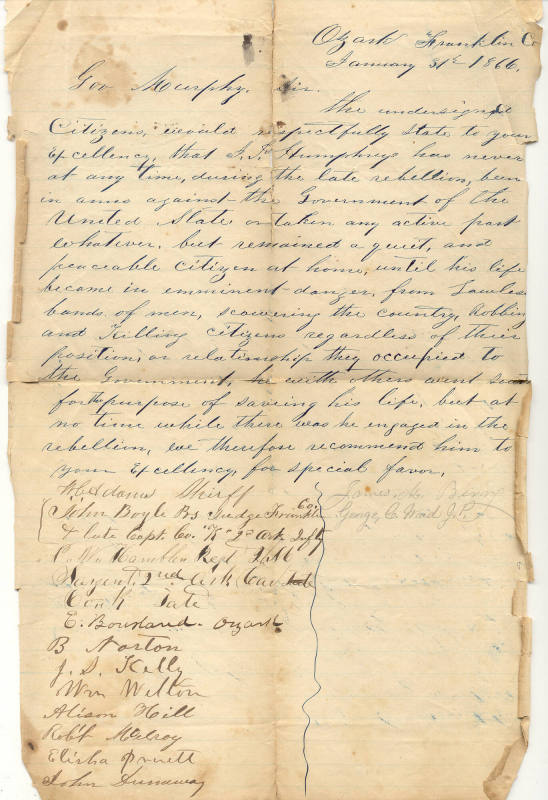 Ozark Franklin Co
January 31st 1866.
Gov Murphy, Sir.
The undersigned
Citizens, would respectfully state to your
Excellency, that Humphreys has never
at any time, during the late rebellion, been
in arms against the Government of the
United State or taken any active part
whatever, but remained a quiet, and
peaceable citizen at home, until his life
became in emminent danger, from Lawless
bands of men, scowering the country, Robbing
and Killing citizens regardless of their
position, or relationship they occupied to
the Government, he with others went south
for the purpose of saveing his life, but at
no time while there was he engaged in the
rebellion, we therefore recommend him to
your Excellency, for special favor,
Adams Shriff
John Boyle Judge Franklin Co.
& late Capt. Co. "K" 2d Ark Inft
Hamblen
Sargent 2nd Ark Cav
Co K Late
E. Bourland. Ozark
B Norton
J. S. Kelly
Wm Wilton
Alison Hill
Robt McElroy
Elisha
John Dunaway
George C. J.P.